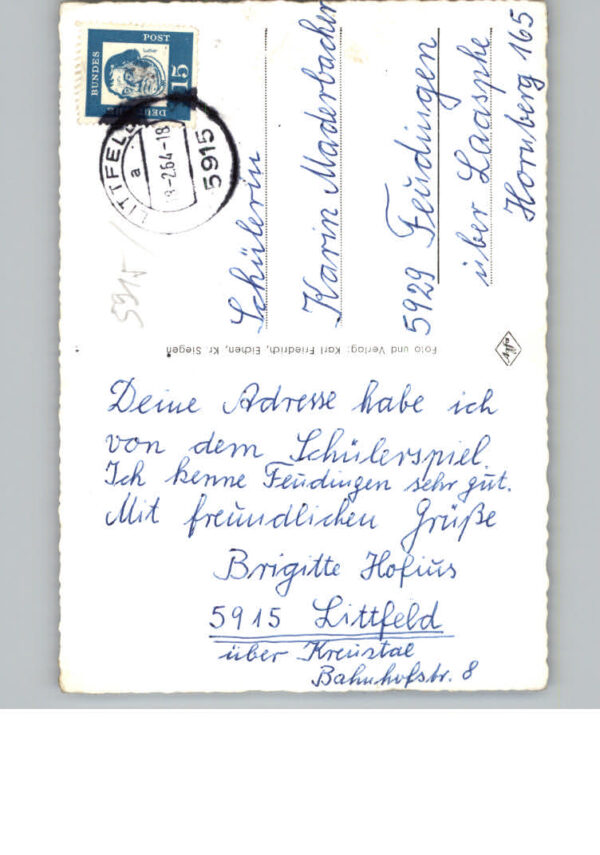 Deine Adresse habe ich
von dem Schülerspiel.
Ich kenne Feudingen sehr gut.
Mit freundlichen Grüße
Brigitte Hofius
5915 Littfeld
über Kreuztal
Bahnhofstr. 8
Schülerin
Karin Maderbacher
5929 Feudingen
über Laasphe
Homberg 165
Foto und Verlag: Karl Friedrich, Eichen, Kr. Siegen
DEUTSCHE
BUNDES
POST
15
LITTFELD
a
-2.64-18
5915
5915